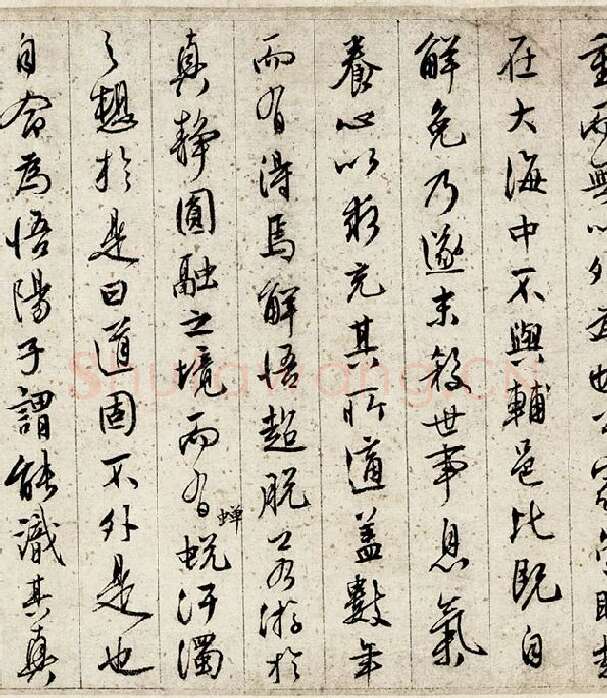 重而無
在大海中不與輔邑比既自
解免乃遂末殺世事息氣
養心以求充其所適蓋數年
而有得焉解悟超脫若游於
真靜圓融之境而有蟬蛻汙濁
之想於是曰道固不外是也
自命為悟陽子謂能識其真